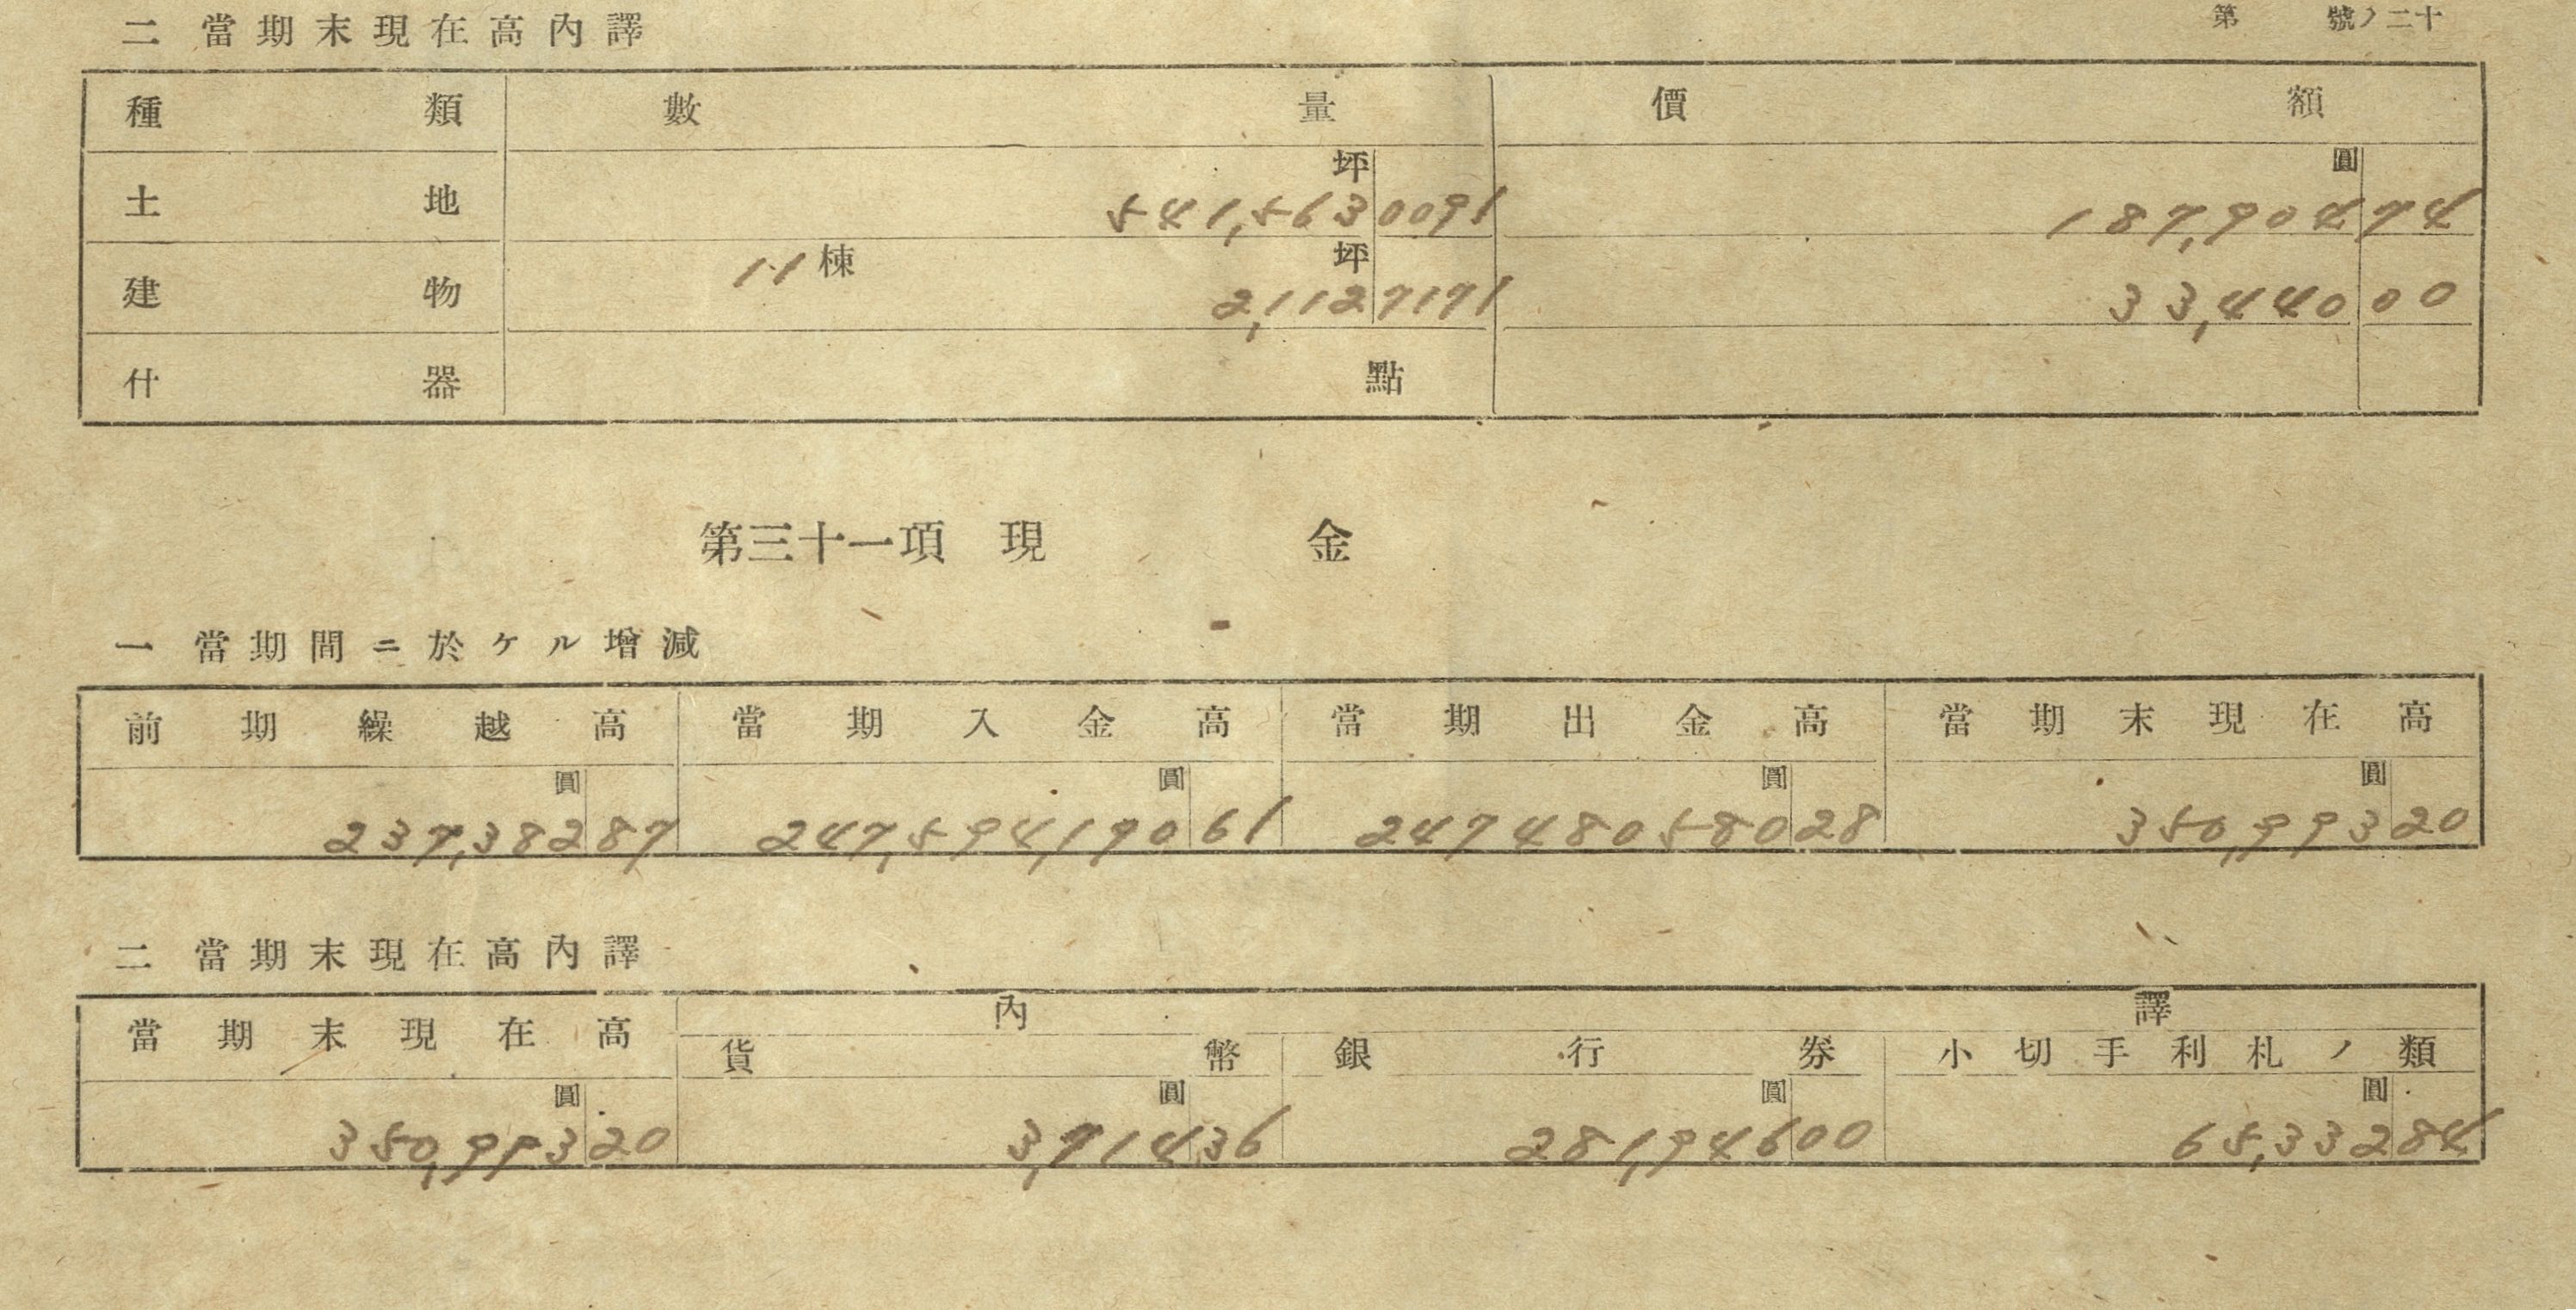 第 號ノ二十
二 當期末現在高內譯
種類 數量 價額
土地 坪 541,563 0091 圓 187,904 74
建物 11棟 坪 2,112 7171 33,440 00
什器 點
第三十一項 現金
一 當期間ニ於ケル增減
前期繰越高 當期入金高 當期出金高 當期末現在高
圓 圓 圓 圓
237,382 87 247,594,190 61 247480580 28 350,993 20
二 當期末現在高內譯
當期末現在高 內譯
貨幣 銀行券 小切手利札ノ類
圓 圓 圓 圓
350,993 20 3,714 36 281,946 00 65,332 84